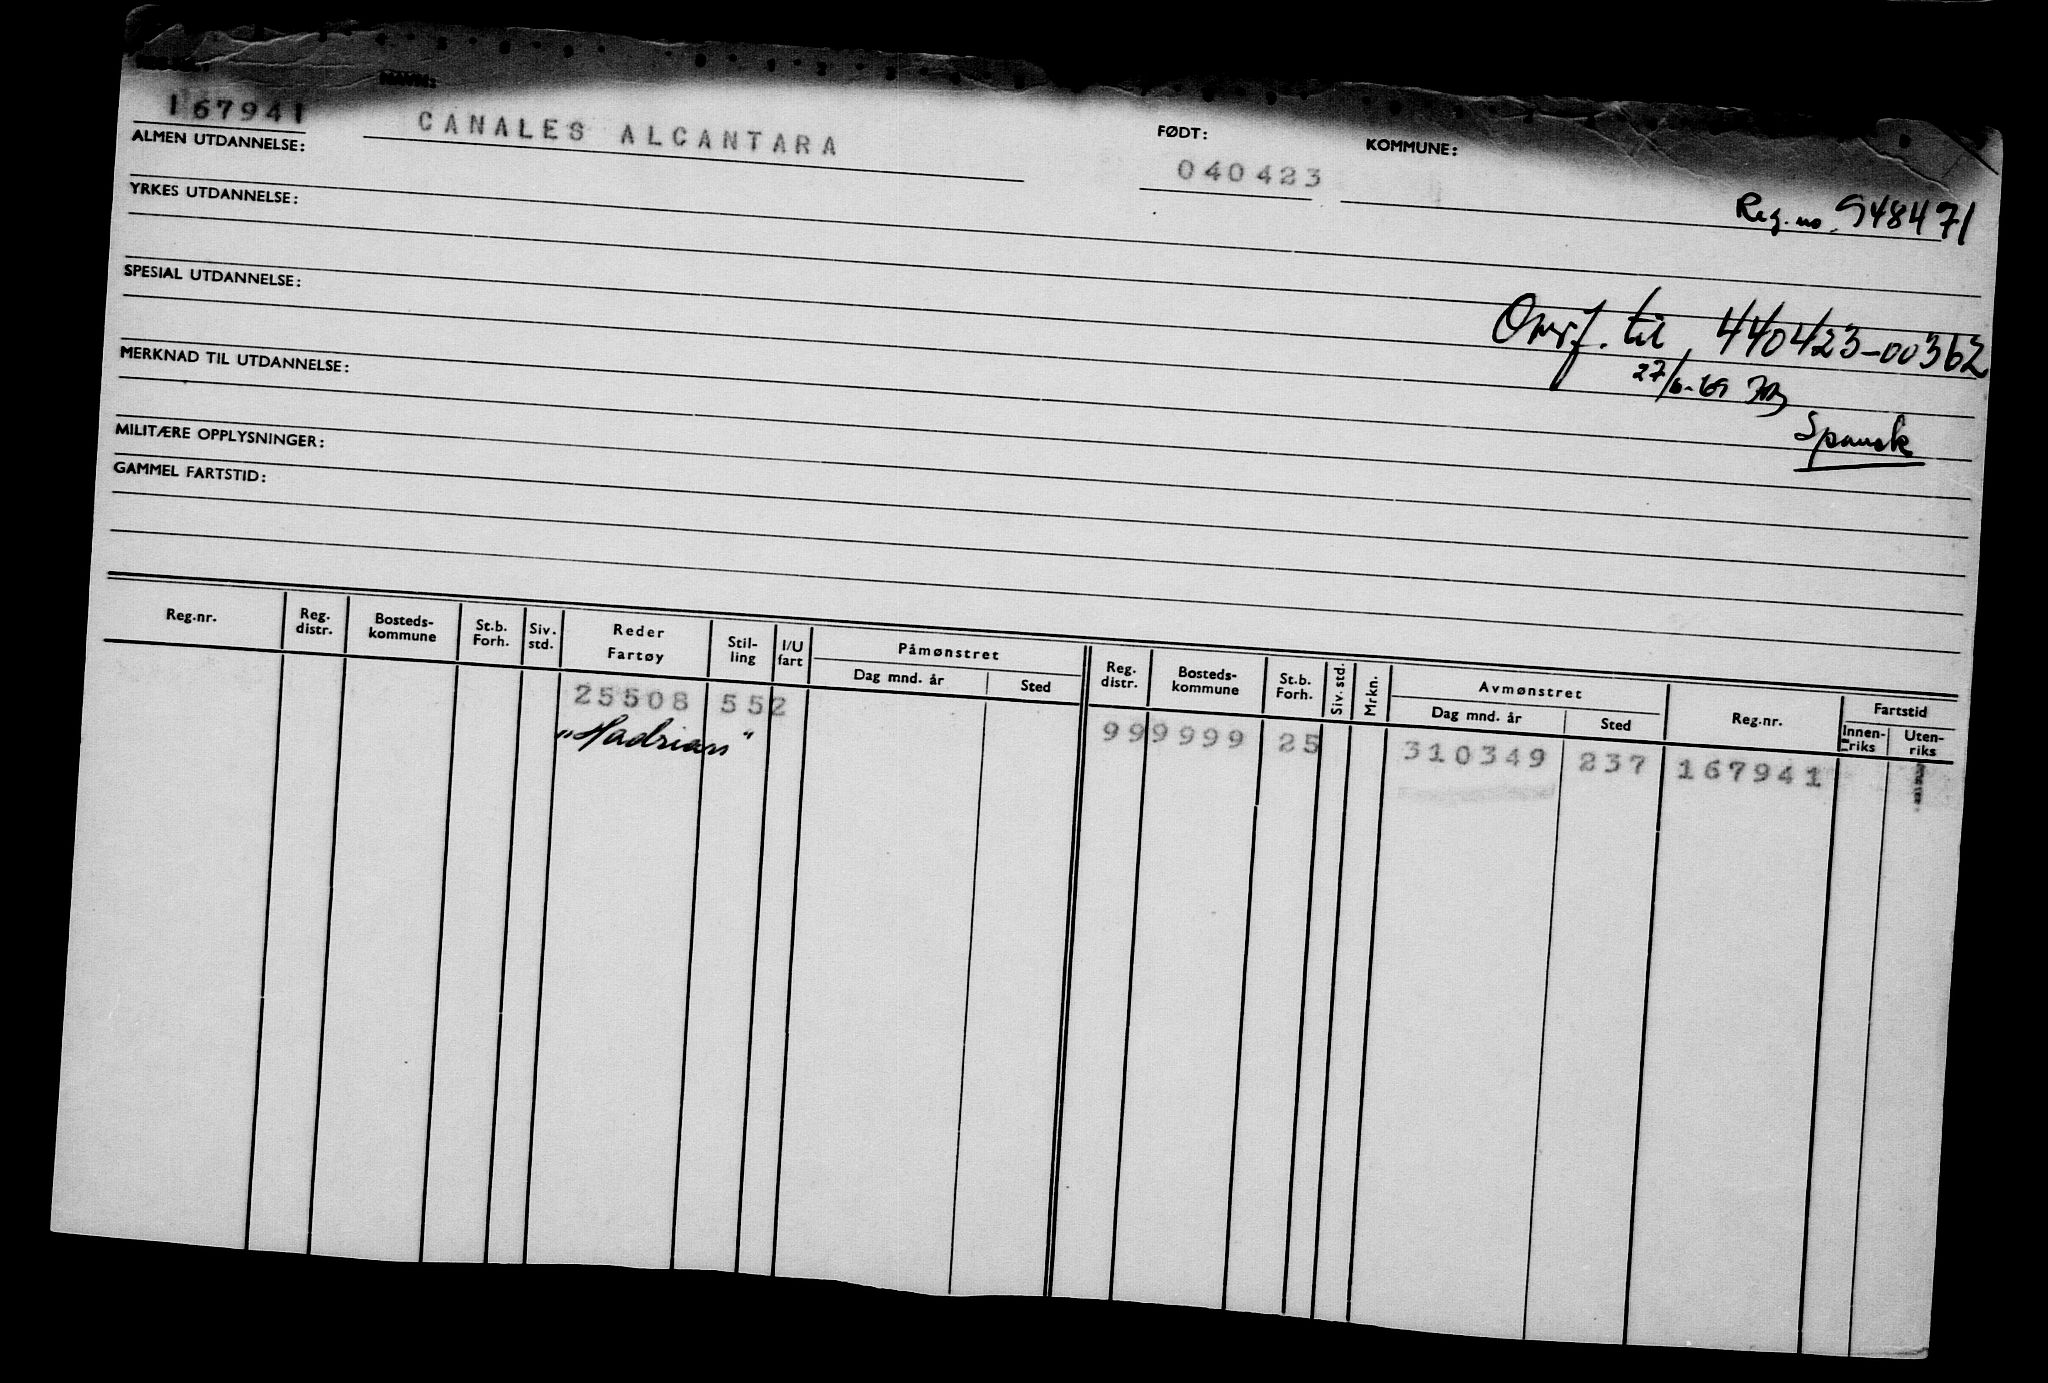 NAVN:
167941 CANALES ALCANTARA FØDT: KOMMUNE:
ALMEN UTDANNELSE: 040423
Reg. no. 948471
YRKES UTDANNELSE:
SPESIAL UTDANNELSE:
Overf. til 440423-00362
27/6-69
MERKNAD TIL UTDANNELSE:
Spansk
MILITÆRE OPPLYSNINGER:
GAMMEL FARTSTID:
Reg.nr. Reg. distr. Bosteds-kommune St.b. Forh. Siv. std. Reder Fartøy Stil-ling I/U fart Påmønstret Dag mnd. år Sted Reg. distr. Bosteds-kommune St.b. Forh. Siv. std. Mrkn. Avmønstret Dag mnd. år Sted Reg.nr. Fartstid Innen-riks Uten-riks
25508 552 999999 25 310349 237 167941
"Hadrian"